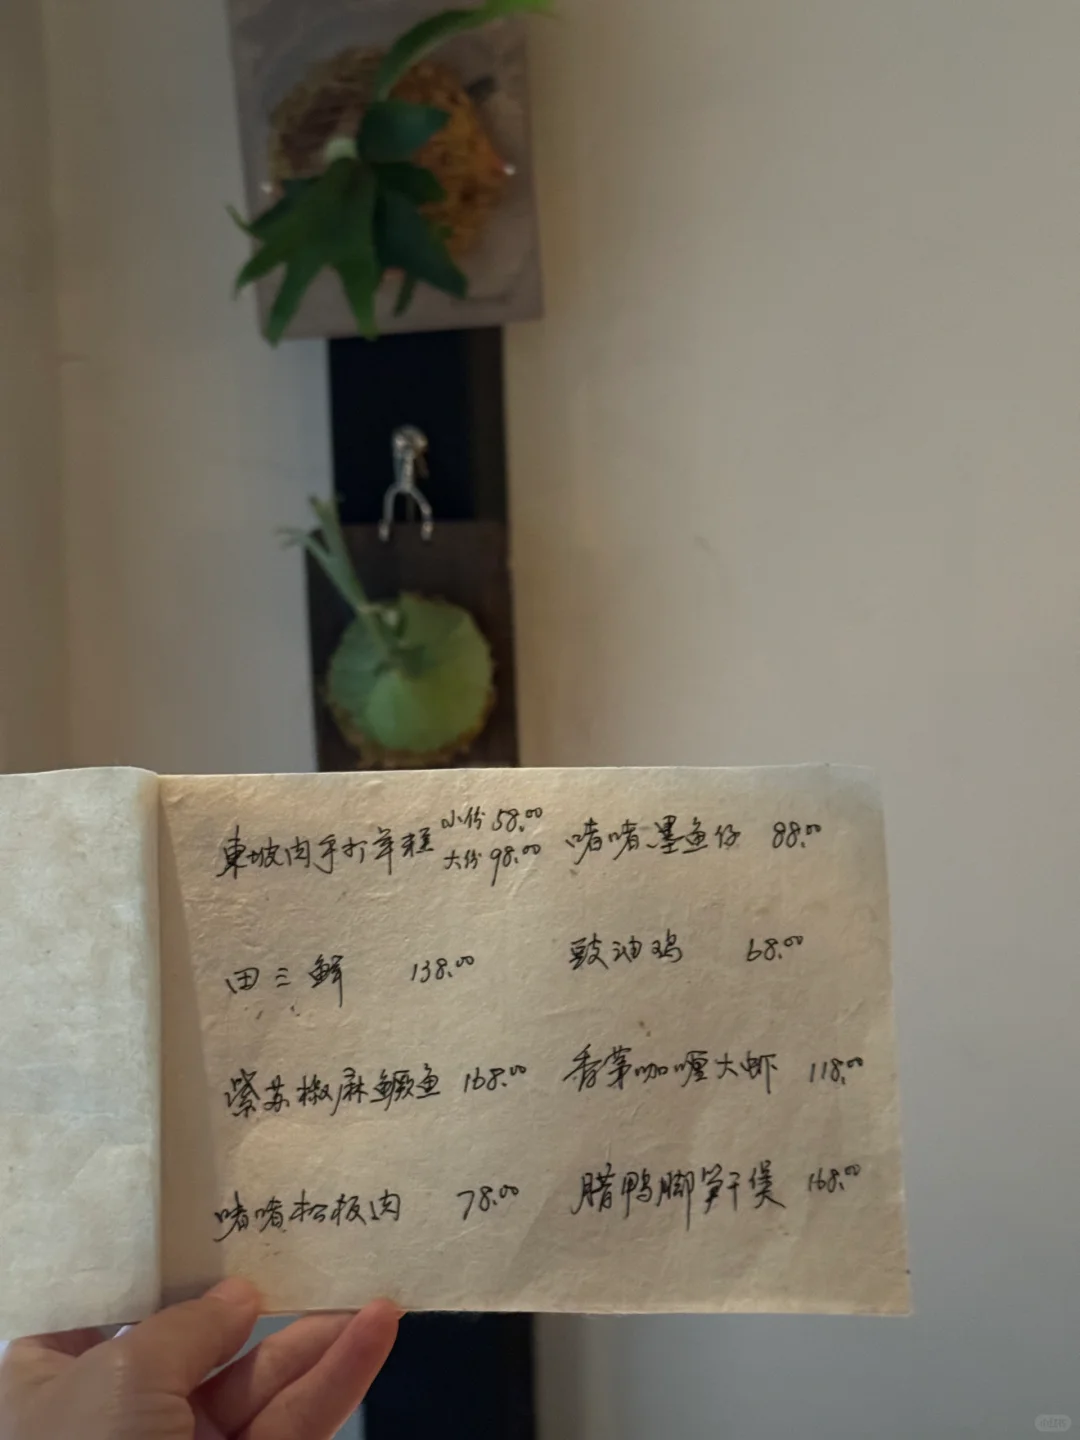 東坡肉手打年糕 小份 58.00
大份 98.00
啫啫墨鱼仔 88.00
田三鲜 138.00
豉油鸡 68.00
紫苏椒麻鳜鱼 168.00
香茅咖喱大虾 118.00
啫啫松板肉 78.00
腊鸭脚笋干煲 168.00